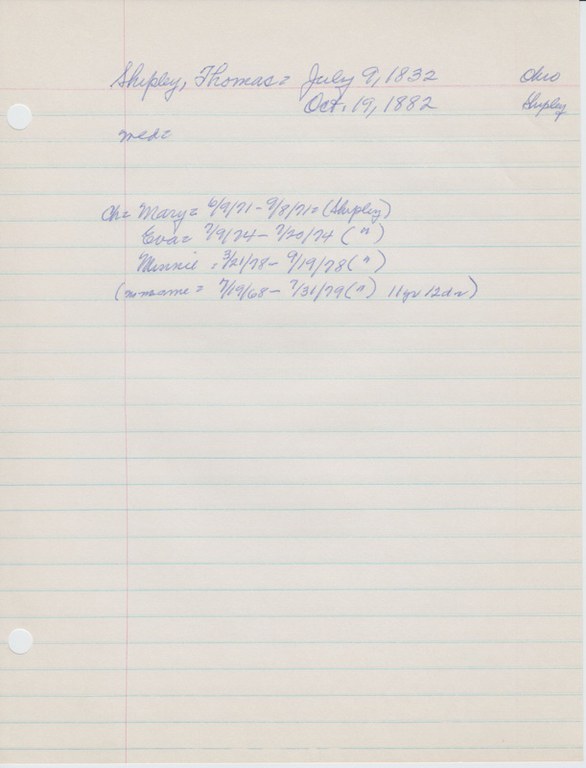 Shipley, Thomas = July 9, 1832 Ohio
Oct. 19, 1882 Shipley
med =
Ch = Mary = 6/9/71 - 9/8/71 = (Shipley)
Eva = 7/9/74 - 7/20/74 (")
Minnie = 3/21/78 - 9/19/78 (")
(no name = 7/19/68 - 7/31/79 (") 11 yr 12 ds)